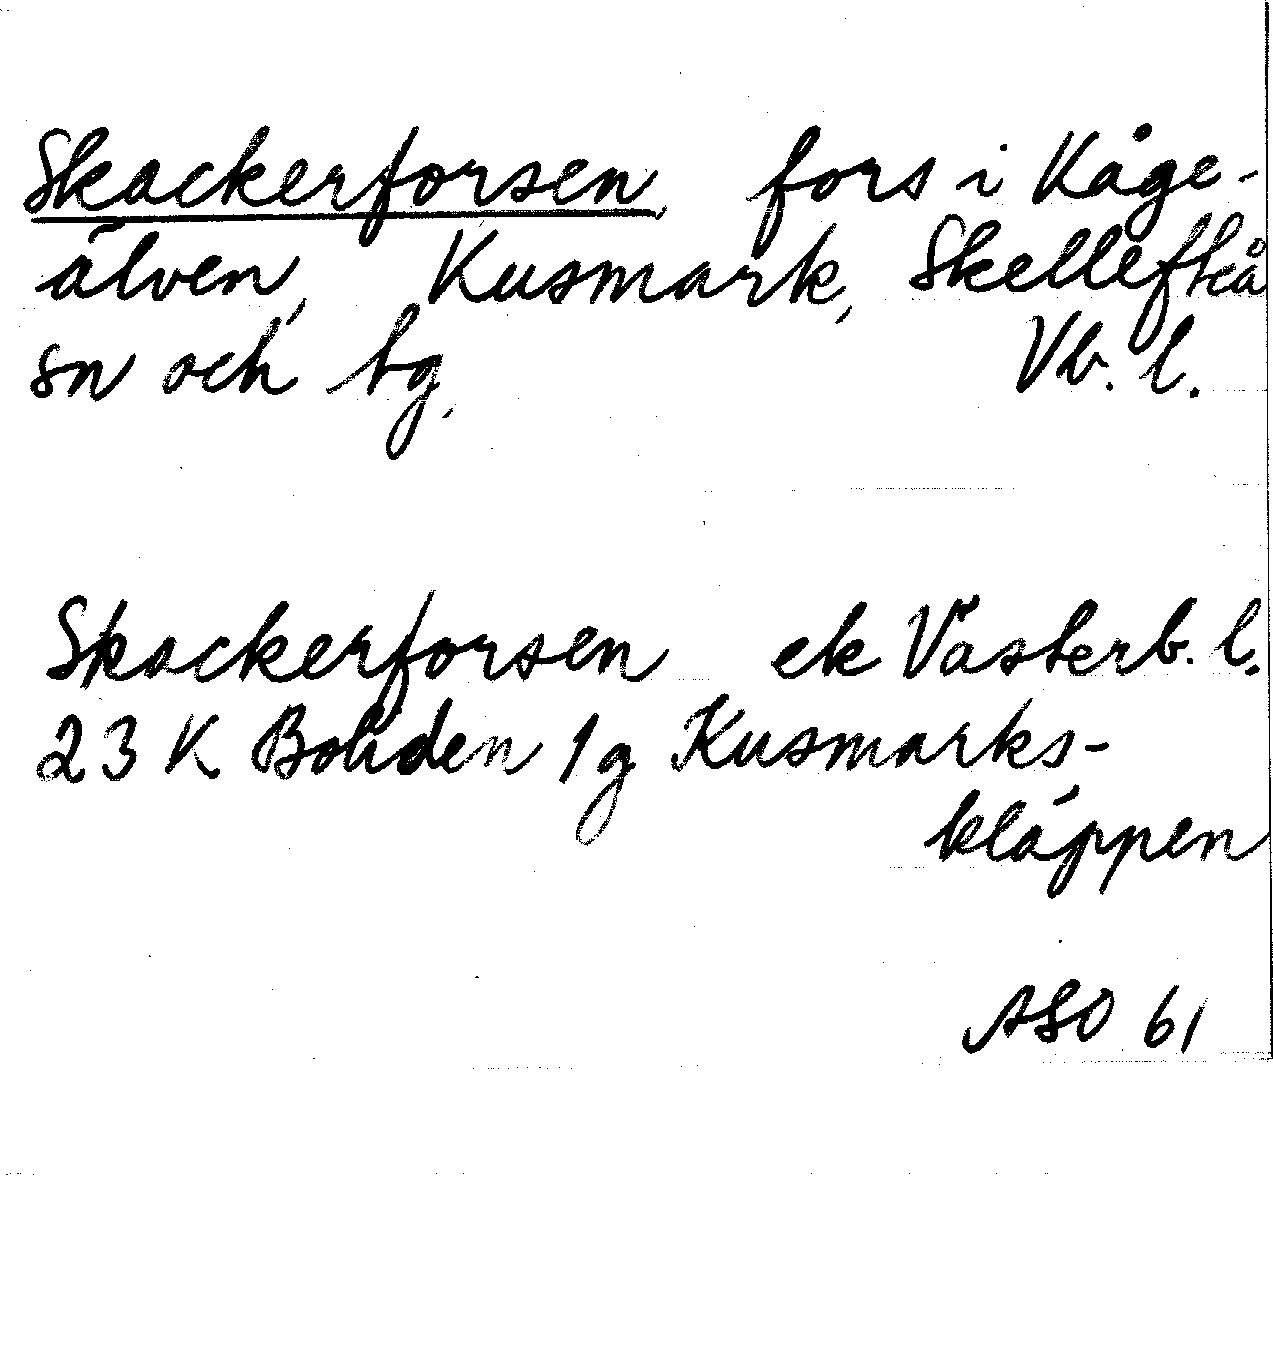 Skackerforsen, fors i Kåge-
älven, Kusmark, Skellefteå
sn och tg, Vb. l.
Skackerforsen ek Västerb. l.
23 K Boliden 1 g Kusmarks-
kläppen
ASO 61